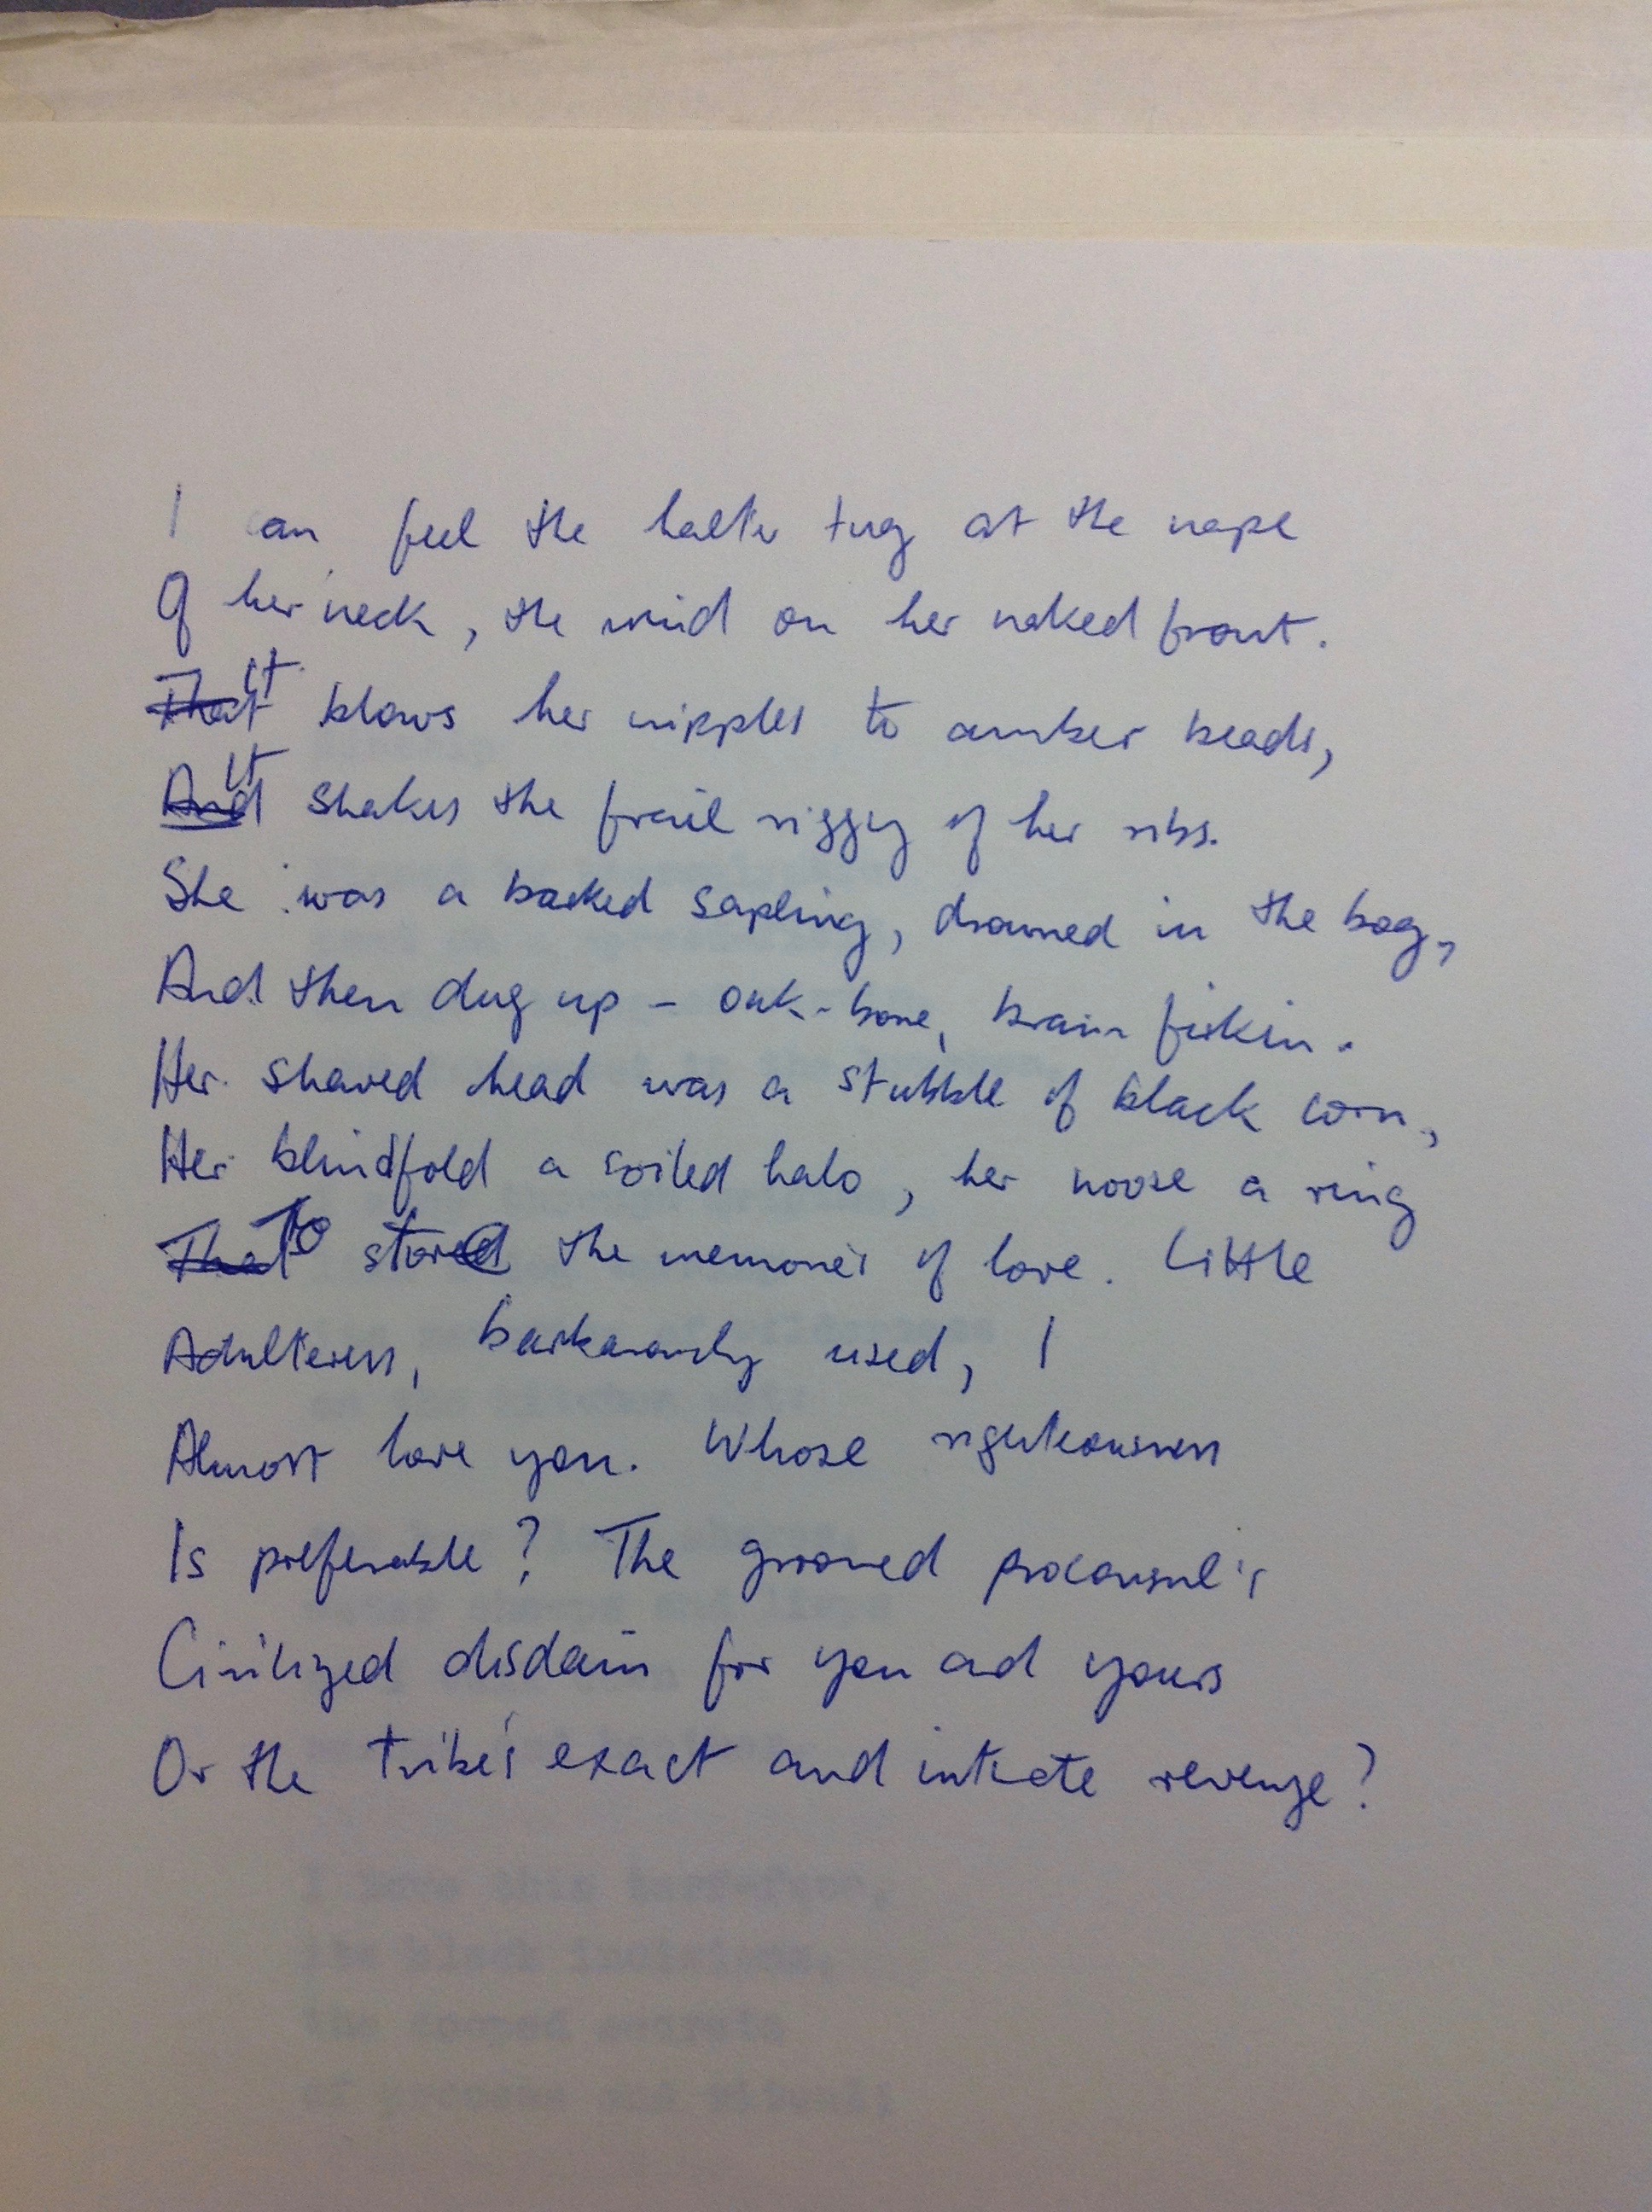 I can feel the halter tug at the nape
Of her neck, the wind on her naked front.
That It blows her nipples to amber beads,
And It shakes the frail rigging of her ribs.
She was a barked sapling, drowned in the bog,
And then dug up - oak-bone, brain firkin.
Her shaved head was a stubble of black corn,
Her blindfold a soiled halo, her noose a ring
That To stored the memories of love. Little
Adulteress, barbarously used, I
Almost love you. Whose righteousness
Is preferable? The groomed proconsul's
Civilized disdain for you and yours
Or the tribe's exact and intimate revenge?